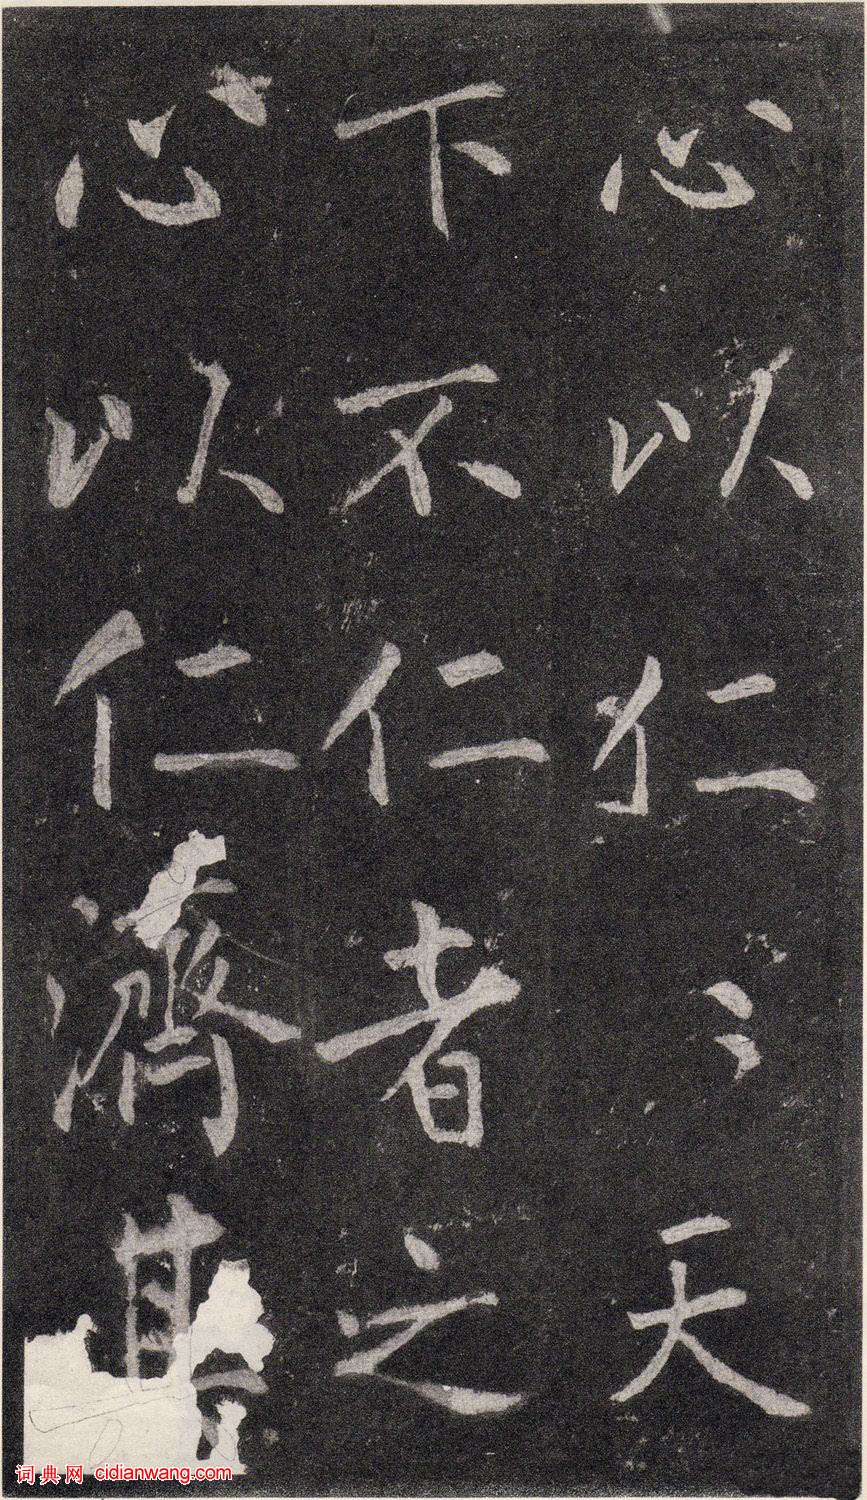 心以仁々天
下不仁者之
心以仁濟其
词典网 cidianwang.com